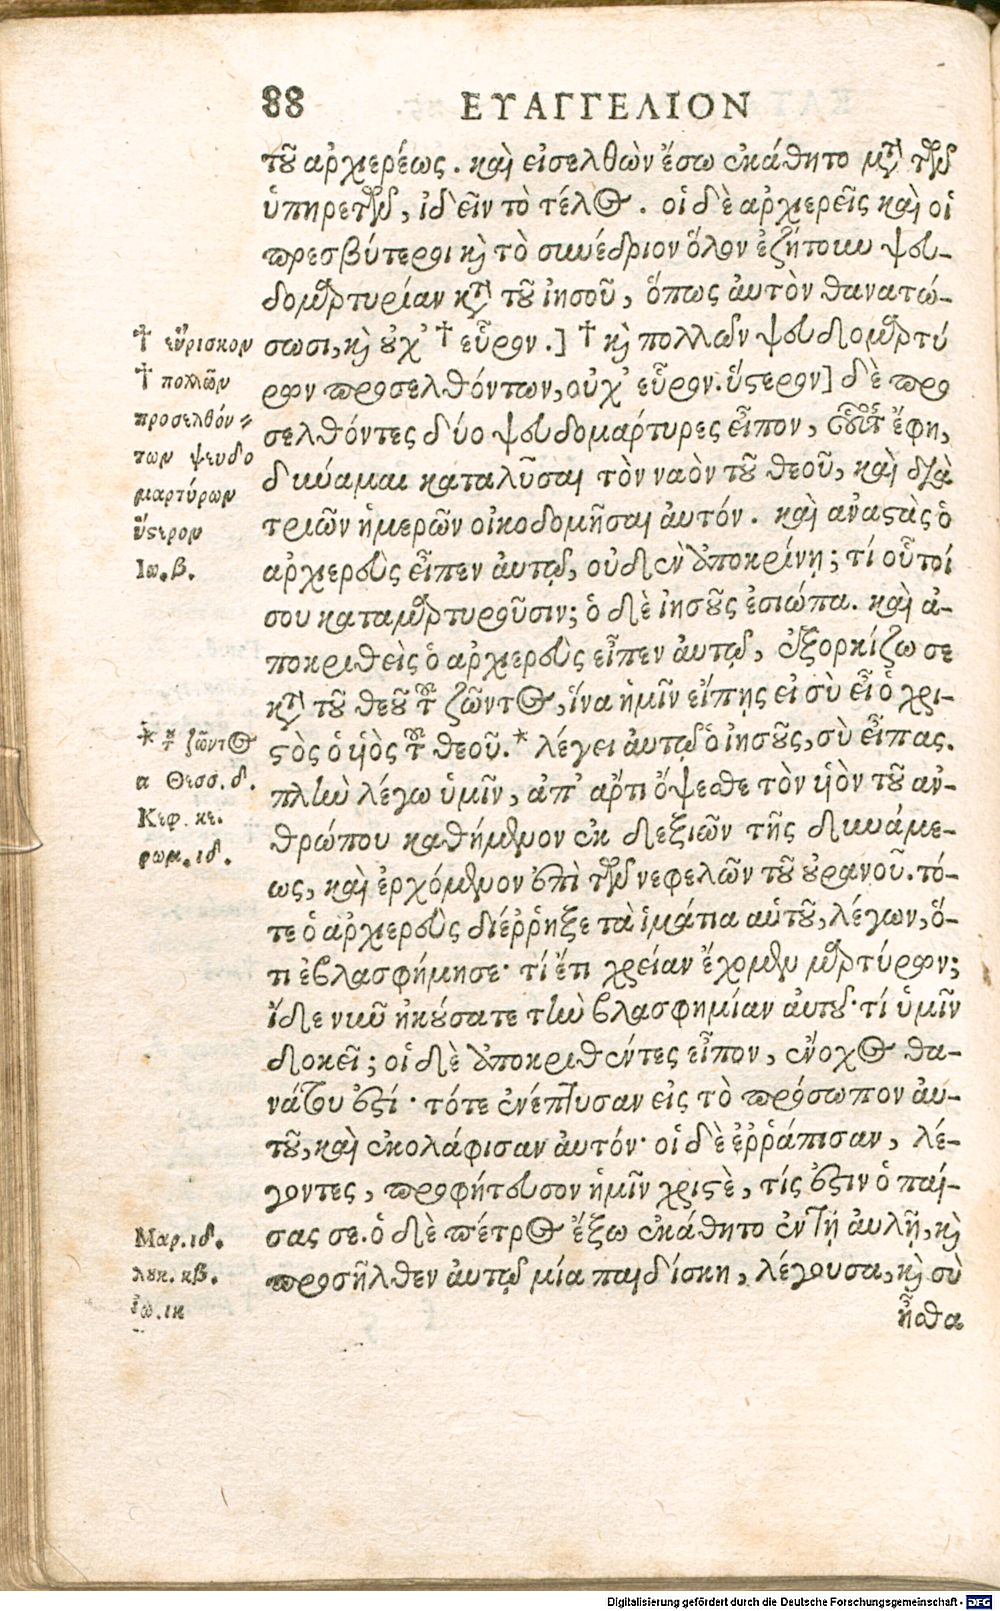 88 ΕΥΑΓΓΕΛΙΟΝ
τοῦ ἀρχιερέως. καὶ εἰσελθὼν ἔσω ἐκάθητο μετὰ τῶν
ὑπηρετῶν, ἰδεῖν τὸ τέλος. οἱ δὲ ἀρχιερεῖς καὶ οἱ
πρεσβύτεροι καὶ τὸ συνέδριον ὅλον ἐζήτουν ψευ-
δομαρτυρίαν κατὰ τοῦ ἰησοῦ, ὅπως ἀυτὸν θανατώ-
σωσι, καὶ οὐχ † εὗρον.] † καὶ πολλῶν ψευδομαρτύ
ρων προσελθόντων, οὐχ εὗρον. ὕστερον] δὲ προ
σελθόντες δύο ψευδομάρτυρες εἶπον, οὗτος ἔφη,
δύναμαι καταλῦσαι τὸν ναὸν τοῦ θεοῦ, καὶ διὰ
τριῶν ἡμερῶν οἰκοδομῆσαι ἀυτόν. καὶ ἀναστὰς ὁ
ἀρχιερεὺς εἶπεν ἀυτῷ, οὐδὲν ἀποκρίνῃ; τί οὗτοί
σου καταμαρτυροῦσιν; ὁ δὲ ἰησοῦς ἐσιώπα. καὶ ἀ-
ποκριθεὶς ὁ ἀρχιερεὺς εἶπεν ἀυτῷ, ἐξορκίζω σε
κατὰ τοῦ θεοῦ τοῦ ζῶντος, ἵνα ἡμῖν εἴπῃς εἰ σὺ εἶ ὁ χρι-
στὸς ὁ υἱὸς τοῦ θεοῦ.* λέγει ἀυτῷ ὁ ἰησοῦς, σὺ εἶπας.
πλὴν λέγω ὑμῖν, ἀπ' ἄρτι ὄψεσθε τὸν υἱὸν τοῦ ἀν-
θρώπου καθήμενον ἐκ δεξιῶν τῆς δυνάμε-
ως, καὶ ἐρχόμενον ἐπὶ τῶν νεφελῶν τοῦ οὐρανοῦ. τό-
τε ὁ ἀρχιερεὺς διέῤῥηξε τὰ ἱμάτια αὑτοῦ, λέγων, ὅ-
τι ἐβλασφήμησε· τί ἔτι χρείαν ἔχομεν μαρτύρων;
ἴδε νῦν ἠκούσατε τὴν βλασφημίαν ἀυτοῦ· τί ὑμῖν
δοκεῖ; οἱ δὲ ἀποκριθέντες εἶπον, ἔνοχος θα-
νάτου ἐστί· τότε ἐνέπτυσαν εἰς τὸ πρόσωπον ἀυ-
τοῦ, καὶ ἐκολάφισαν ἀυτόν· οἱ δὲ ἐῤῥάπισαν, λέ-
γοντες, προφήτευσον ἡμῖν χριστὲ, τίς ἐστιν ὁ παί-
σας σε. ὁ δὲ πέτρος ἔξω ἐκάθητο ἐν τῇ ἀυλῇ, καὶ
προσῆλθεν ἀυτῷ μία παιδίσκη, λέγουσα, καὶ σὺ
ἦσθα
† εὕρισκον
† πολλῶν
προσελθόν-
των ψευδο
μαρτύρων
ὕστερον
Ιω. β.
* τοῦ ζῶντος
α Θεσσ. δ.
Κεφ. κε.
ρωμ. ιδ.
Μαρ. ιδ.
λουκ. κβ.
ἰω. ιη
Digitalisierung gefördert durch die Deutsche Forschungsgemeinschaft - DFG